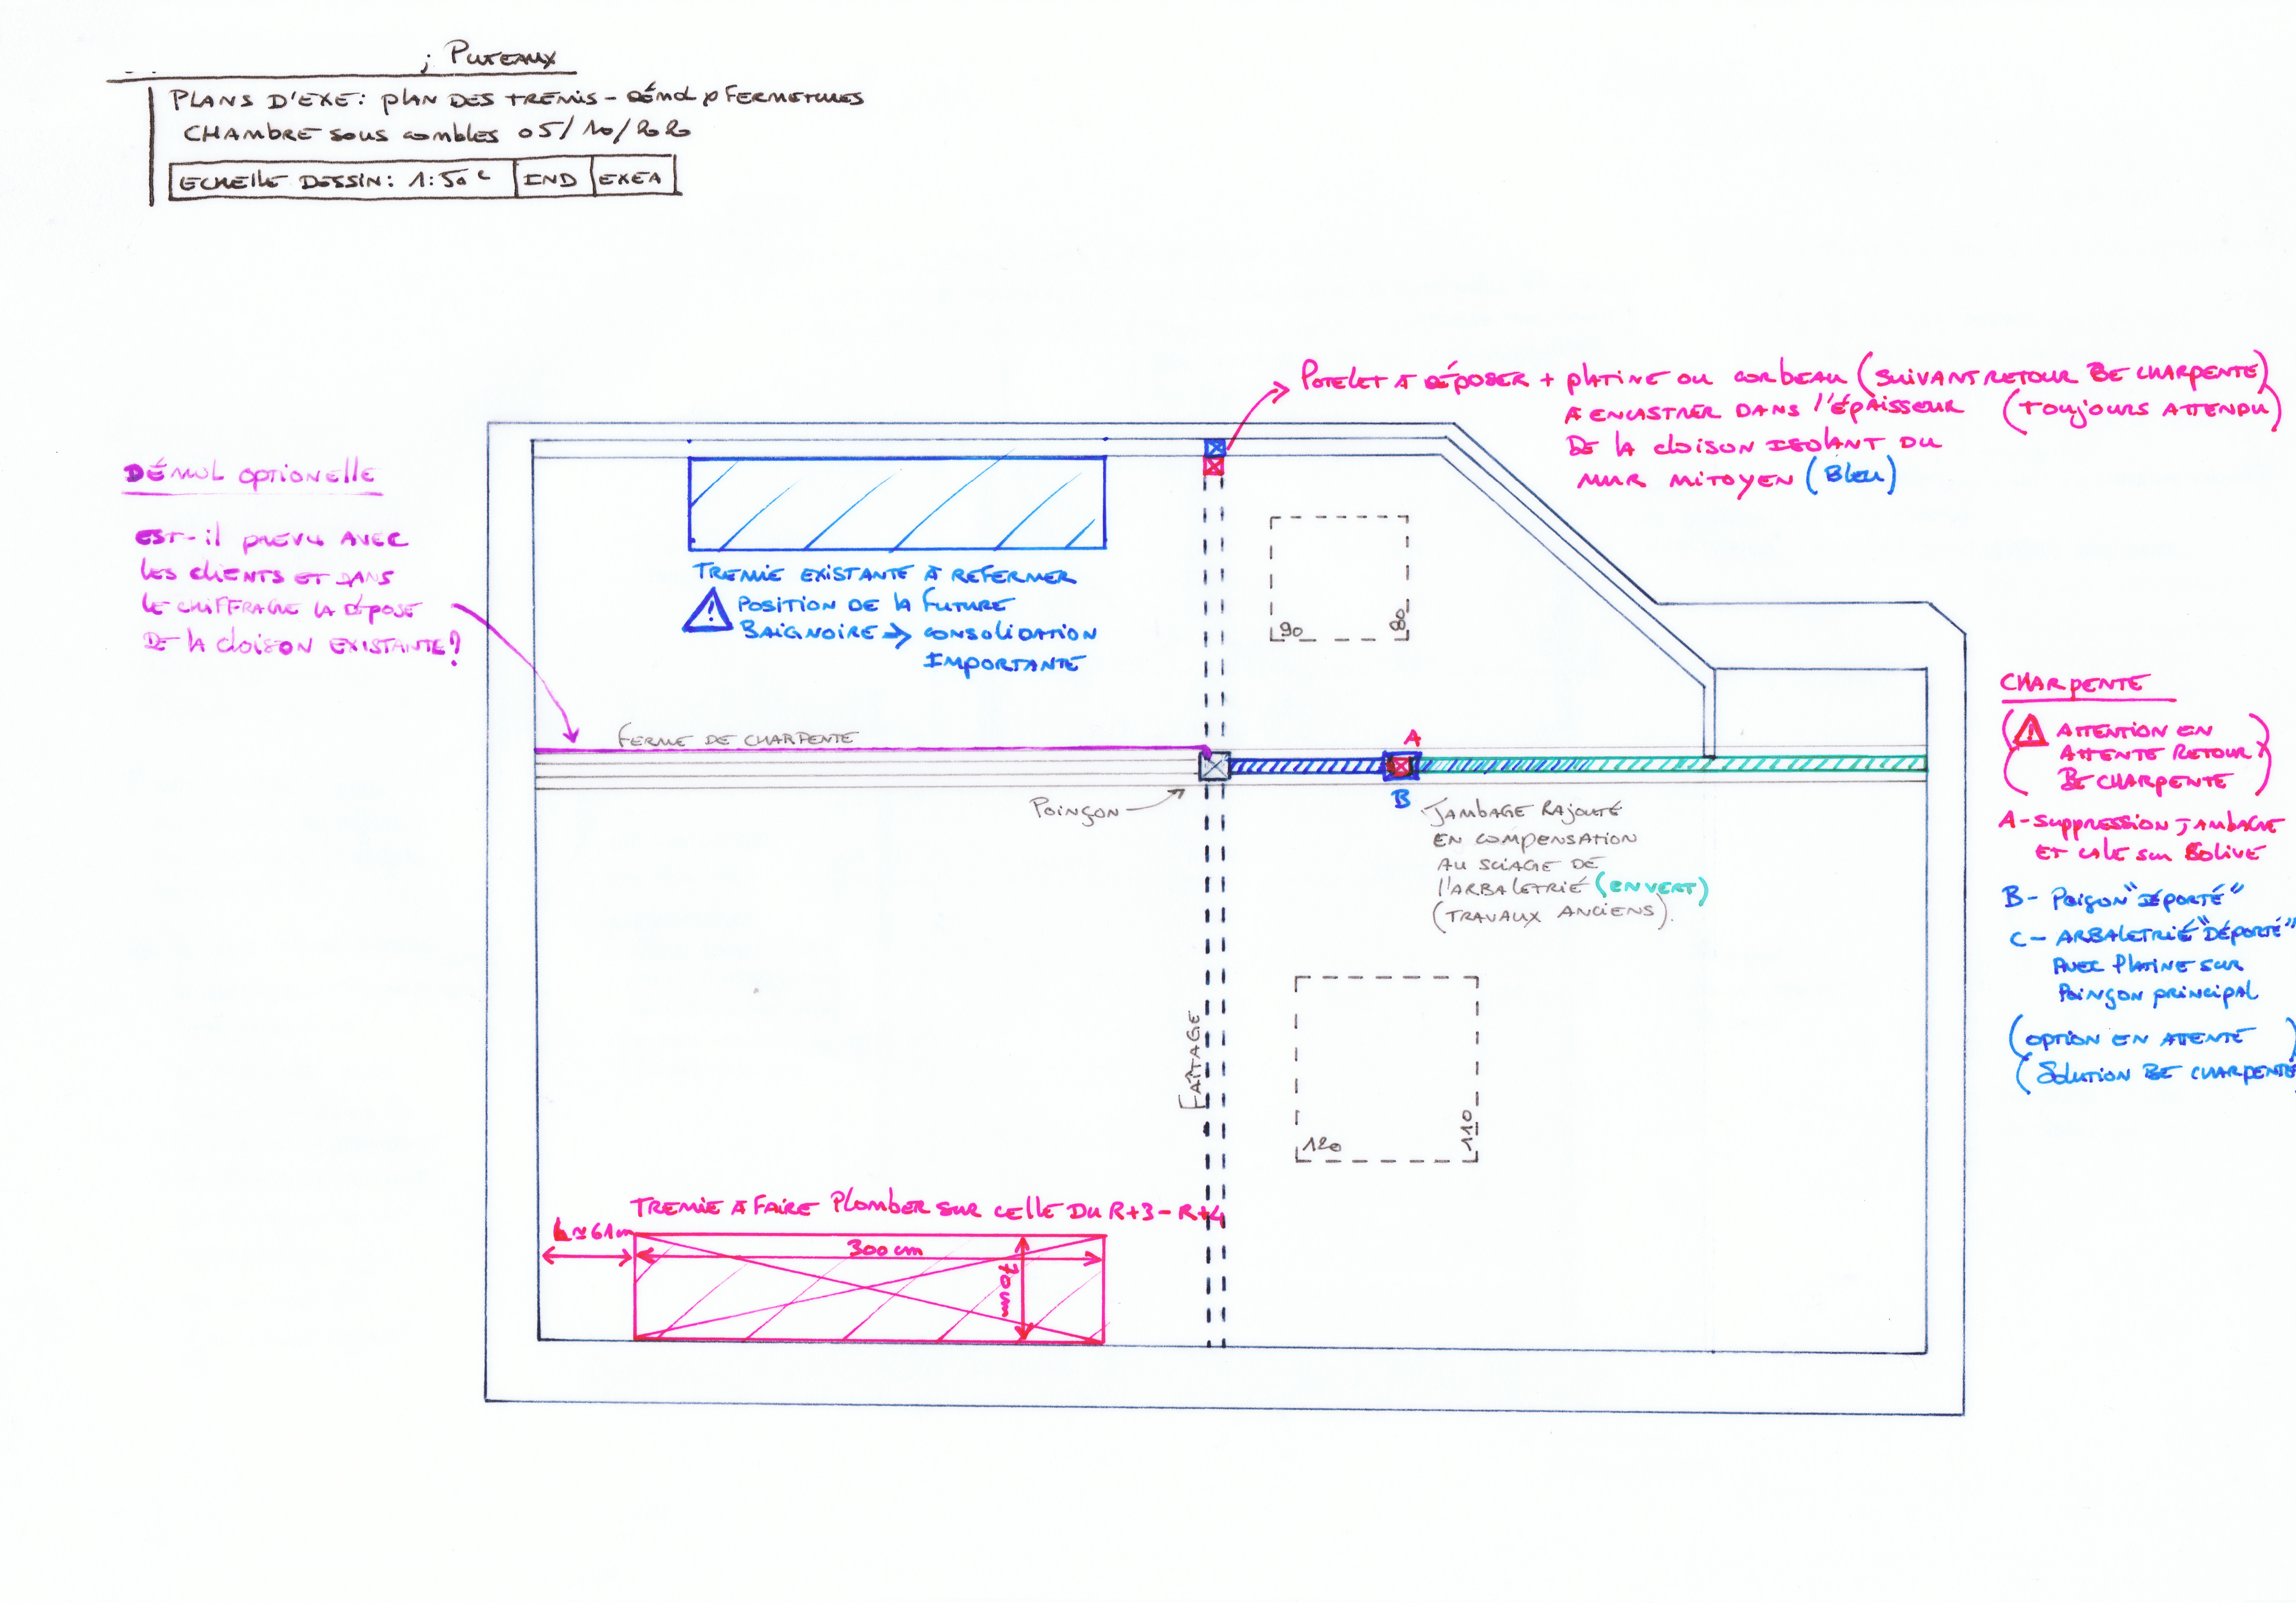 ; PUTEAUX
PLANS D'EXE: PLAN DES TREMIS - DÉMOL FERMETURES
CHAMBRE SOUS COMBLES 05/10/2020
ECHELLE DESSIN: 1:50e IND EXEA
POTELET A DÉPOSER + PLATINE OU CORBEAU (SUIVANT RETOUR BE CHARPENTE)
A ENCASTRER DANS L'ÉPAISSEUR (TOUJOURS ATTENDU)
DE LA CLOISON ISOLANT DU
MUR MITOYEN (BLEU)
DÉMOL OPTIONELLE
EST-IL PREVU AVEC
LES CLIENTS ET DANS
LE CHIFFRAGE LA DÉPOSE
DE LA CLOISON EXISTANTE?
TREMIE EXISTANTE À REFERMER
POSITION DE LA FUTURE
BAIGNOIRE → CONSOLIDATION
IMPORTANTE
90
80
FERME DE CHARPENTE
POINÇON
A
B
JAMBAGE RAJOUTÉ
EN COMPENSATION
AU SCIAGE DE
L'ARBALETRIÉ (EN VERT)
(TRAVAUX ANCIENS).
CHARPENTE
(⚠ ATTENTION EN
ATTENTE RETOUR
BE CHARPENTE)
A - SUPPRESSION JAMBAGE
ET CALE SUR SOLIVE
B - POIÇON "DÉPORTÉ"
C - ARBALETRIÉ "DÉPORTÉ"
AVEC PLATINE SUR
POINÇON PRINCIPAL
(OPTION EN ATTENTE)
(SOLUTION BE CHARPENTE)
FAÎTAGE
120
110
TREMIE A FAIRE PLOMBER SUR CELLE DU R+3 - R+4
61cm
300 cm
70 cm